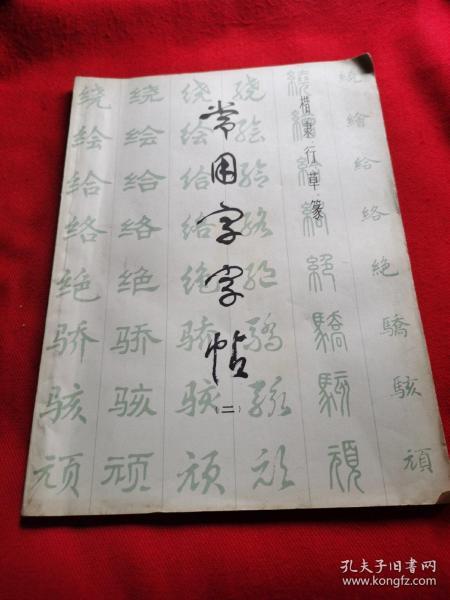 常用字字帖
（二）
楷隶·行·草·篆
绕绘给络绝骄骇顽
绕绘给络绝骄骇顽
绕绘给络绝骄骇顽
绕绘给络绝骄骇顽
繞繪給絡絶驕駭頑
繞繪給絡絶驕駭頑
孔夫子旧书网
www.kongfz.com